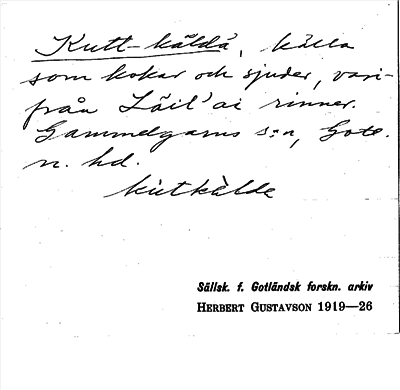 Kutt-käldå, källa
som kokar och sjuder, vari-
från Läil'ai rinner.
Gammelgarns s:n, Gotl.
n. hd.
kùtkàlde
Sällsk. f. Gotländsk forskn. arkiv
HERBERT GUSTAVSON 1919—26